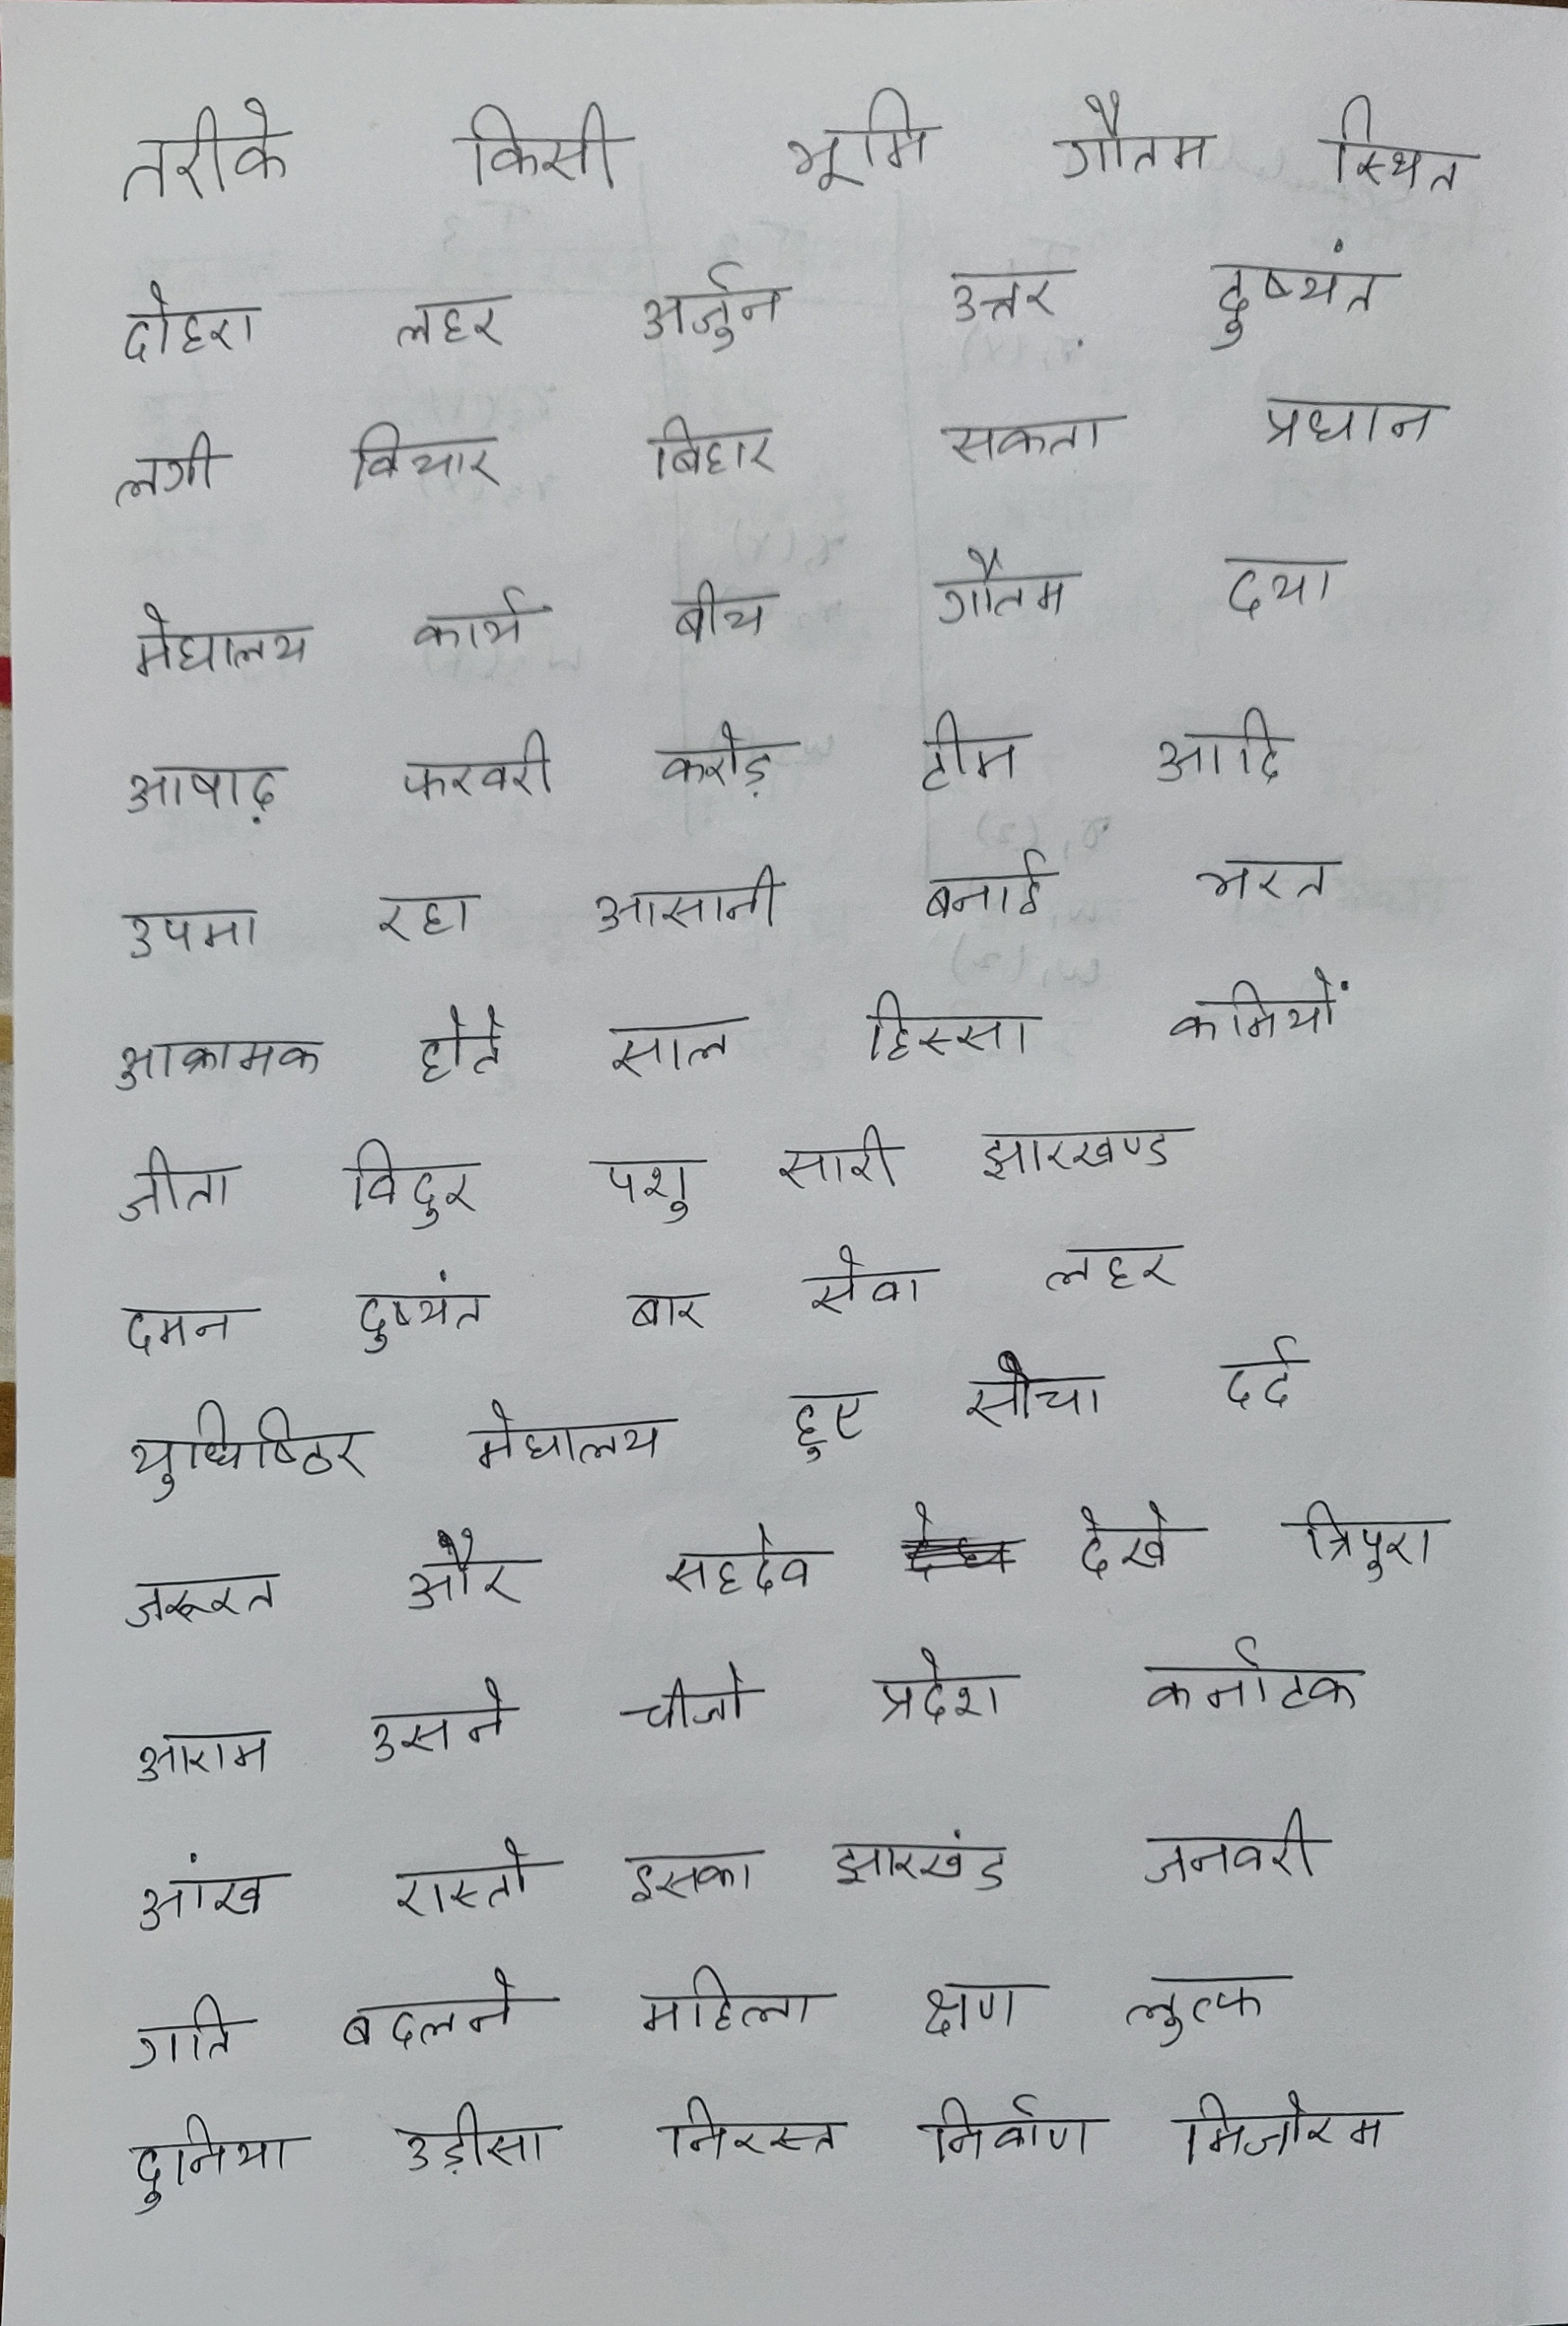 तरीके किसी भूमि गौतम स्थित
दोहरा लहर अर्जुन उत्तर दुष्यंत
लगी विचार बिहार सकता प्रधान
मेघालय कार्य बीच गौतम दया
आषाढ़ फरवरी करोड़ टीम आदि
उपमा रहा आसानी बनाई भरत
आक्रामक होते साल हिस्सा कमियों
जीता विदुर पशु सारी झारखण्ड
दमन दुष्यंत बार सेवा लहर
युधिष्ठिर मेघालय हुए सोचा दर्द
जरूरत और सहदेव देखे त्रिपुरा
आराम उसने चीजो प्रदेश कर्नाटक
आंख रास्तो इसका झारखंड जनवरी
गति बदलने महिला क्षण लुत्फ
दुनिया उड़ीसा निरस्त निर्वाण मिजोरम